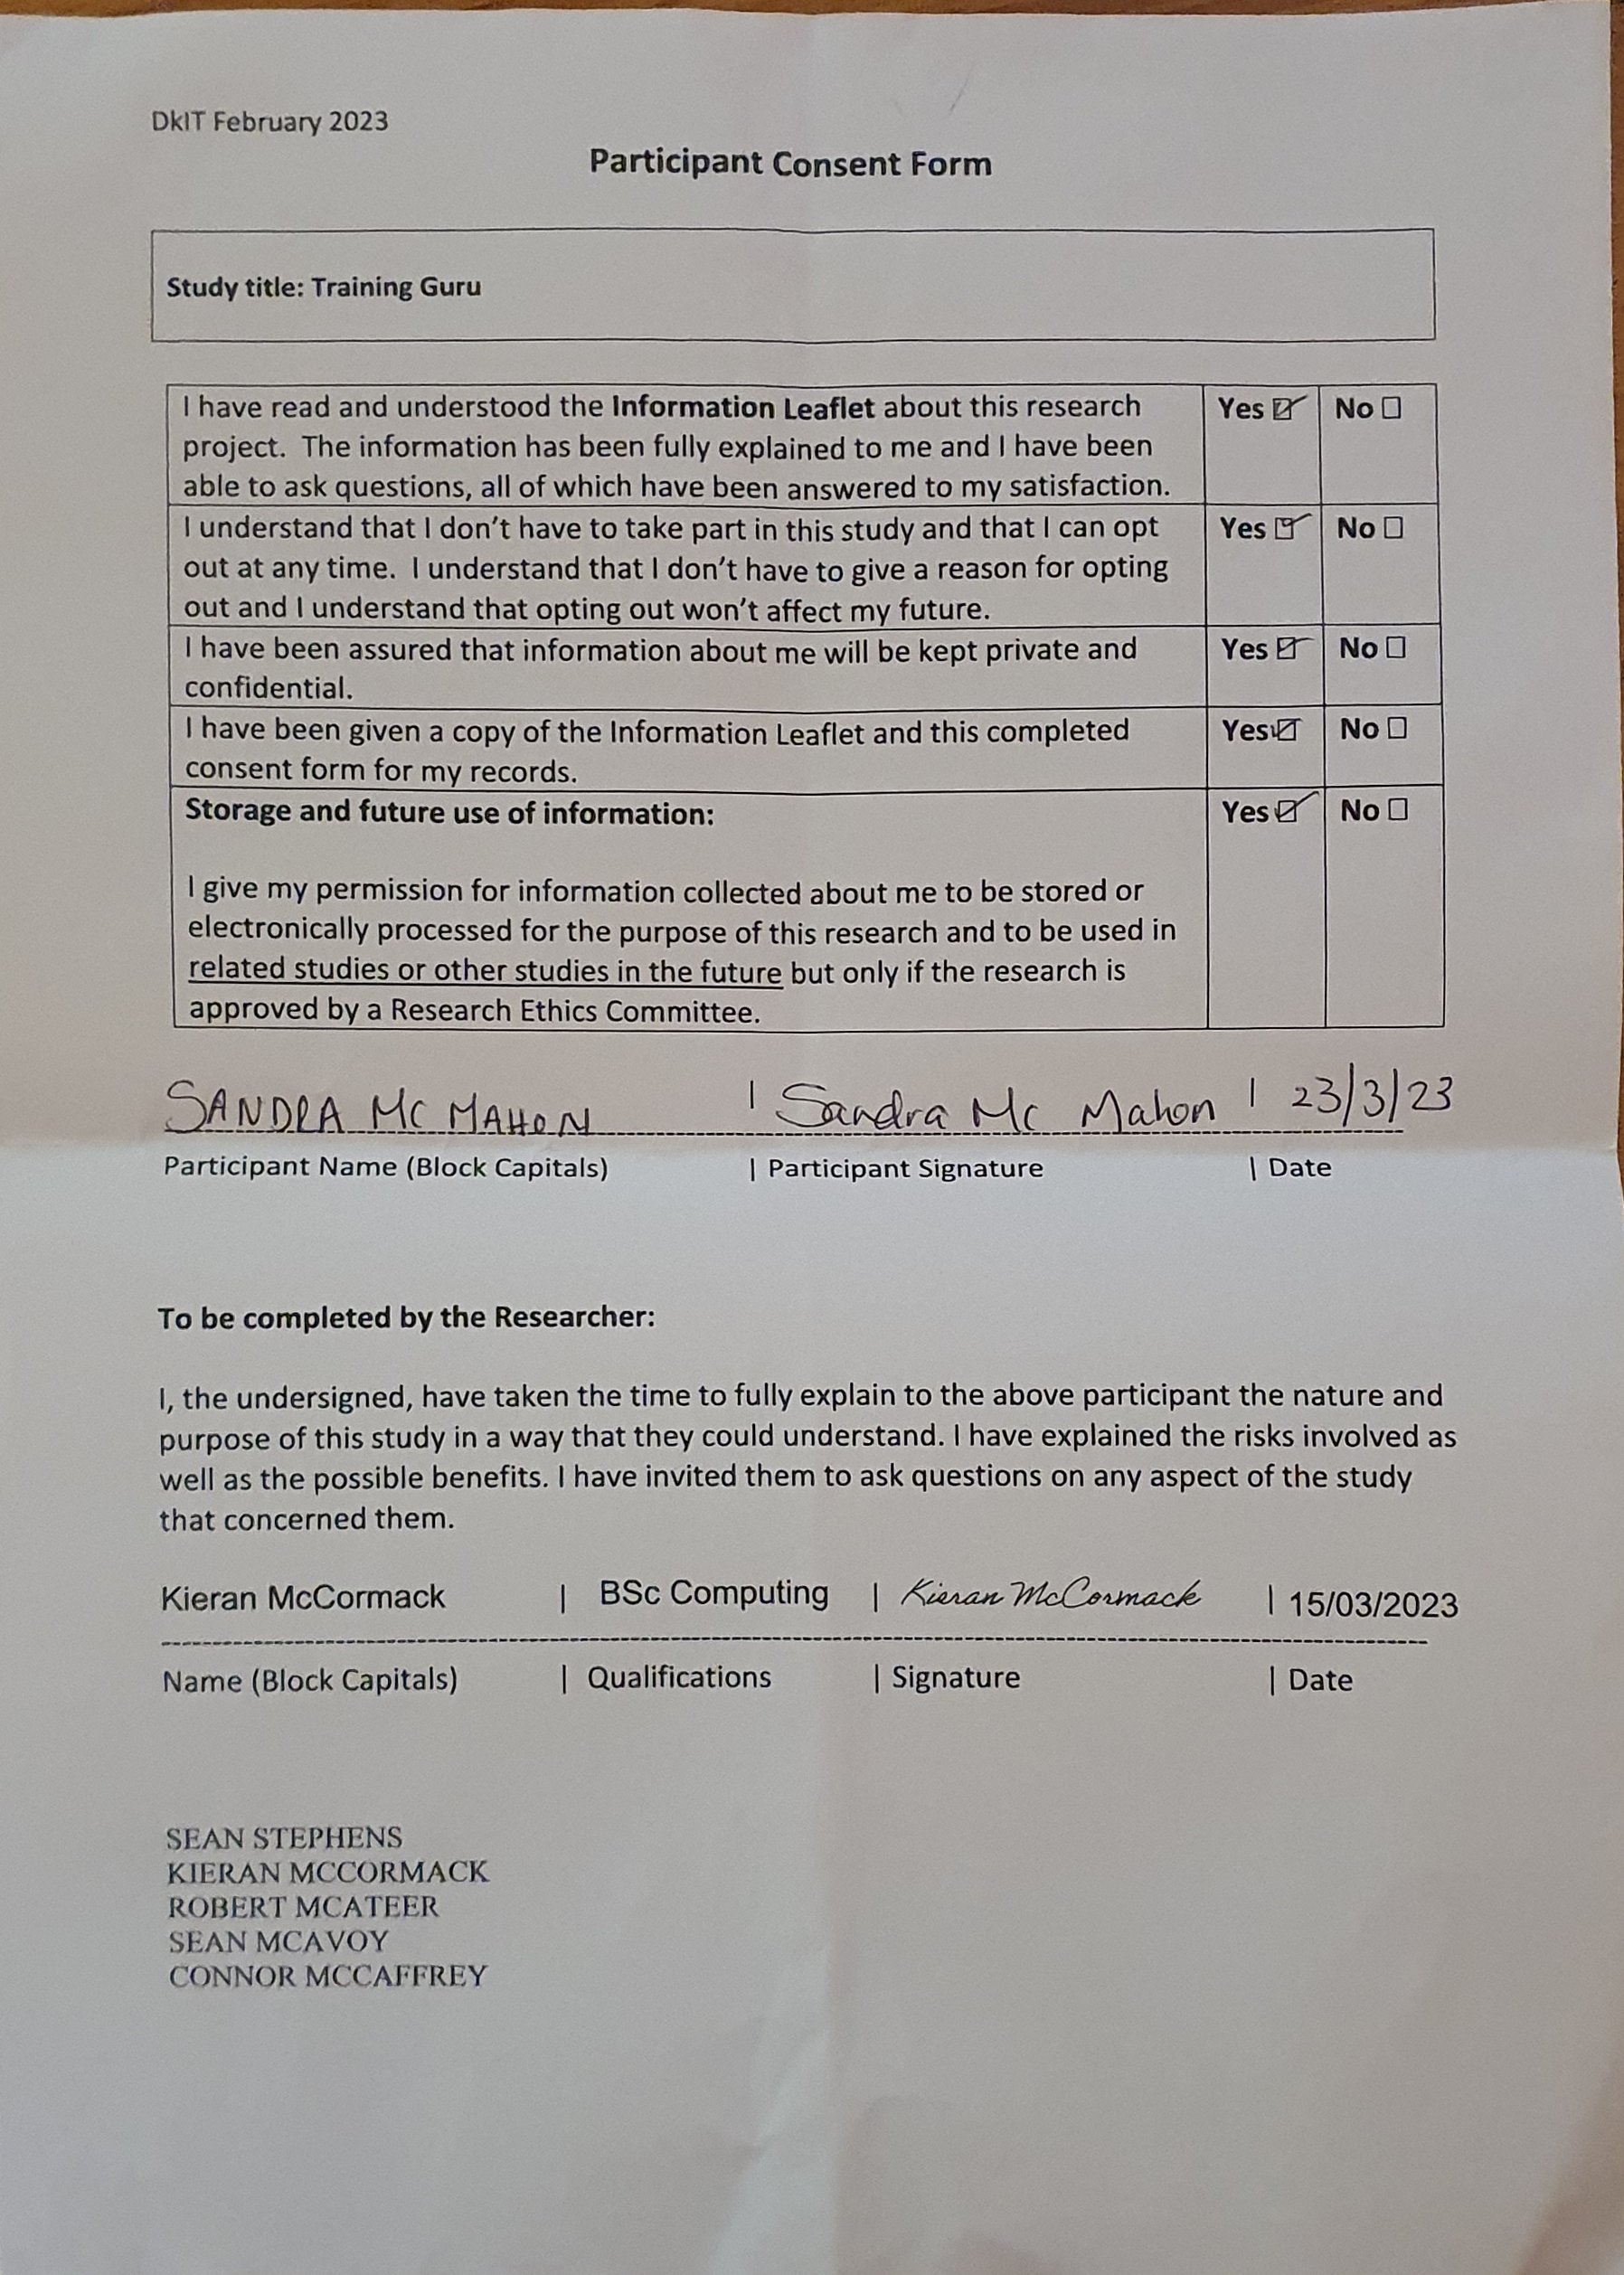 DkIT February 2023
Participant Consent Form
Study title: Training Guru
I have read and understood the Information Leaflet about this research
project. The information has been fully explained to me and I have been
able to ask questions, all of which have been answered to my satisfaction.
Yes ☑ No ☐
I understand that I don't have to take part in this study and that I can opt
out at any time. I understand that I don't have to give a reason for opting
out and I understand that opting out won't affect my future.
Yes ☑ No ☐
I have been assured that information about me will be kept private and
confidential.
Yes ☑ No ☐
I have been given a copy of the Information Leaflet and this completed
consent form for my records.
Yes ☑ No ☐
Storage and future use of information:
I give my permission for information collected about me to be stored or
electronically processed for the purpose of this research and to be used in
related studies or other studies in the future but only if the research is
approved by a Research Ethics Committee.
Yes ☑ No ☐
SANDRA MC MAHON | Sandra Mc Mahon | 23/3/23
Participant Name (Block Capitals) | Participant Signature | Date
To be completed by the Researcher:
I, the undersigned, have taken the time to fully explain to the above participant the nature and
purpose of this study in a way that they could understand. I have explained the risks involved as
well as the possible benefits. I have invited them to ask questions on any aspect of the study
that concerned them.
Kieran McCormack | BSc Computing | Kieran McCormack | 15/03/2023
Name (Block Capitals) | Qualifications | Signature | Date
SEAN STEPHENS
KIERAN MCCORMACK
ROBERT MCATEER
SEAN MCAVOY
CONNOR MCCAFFREY